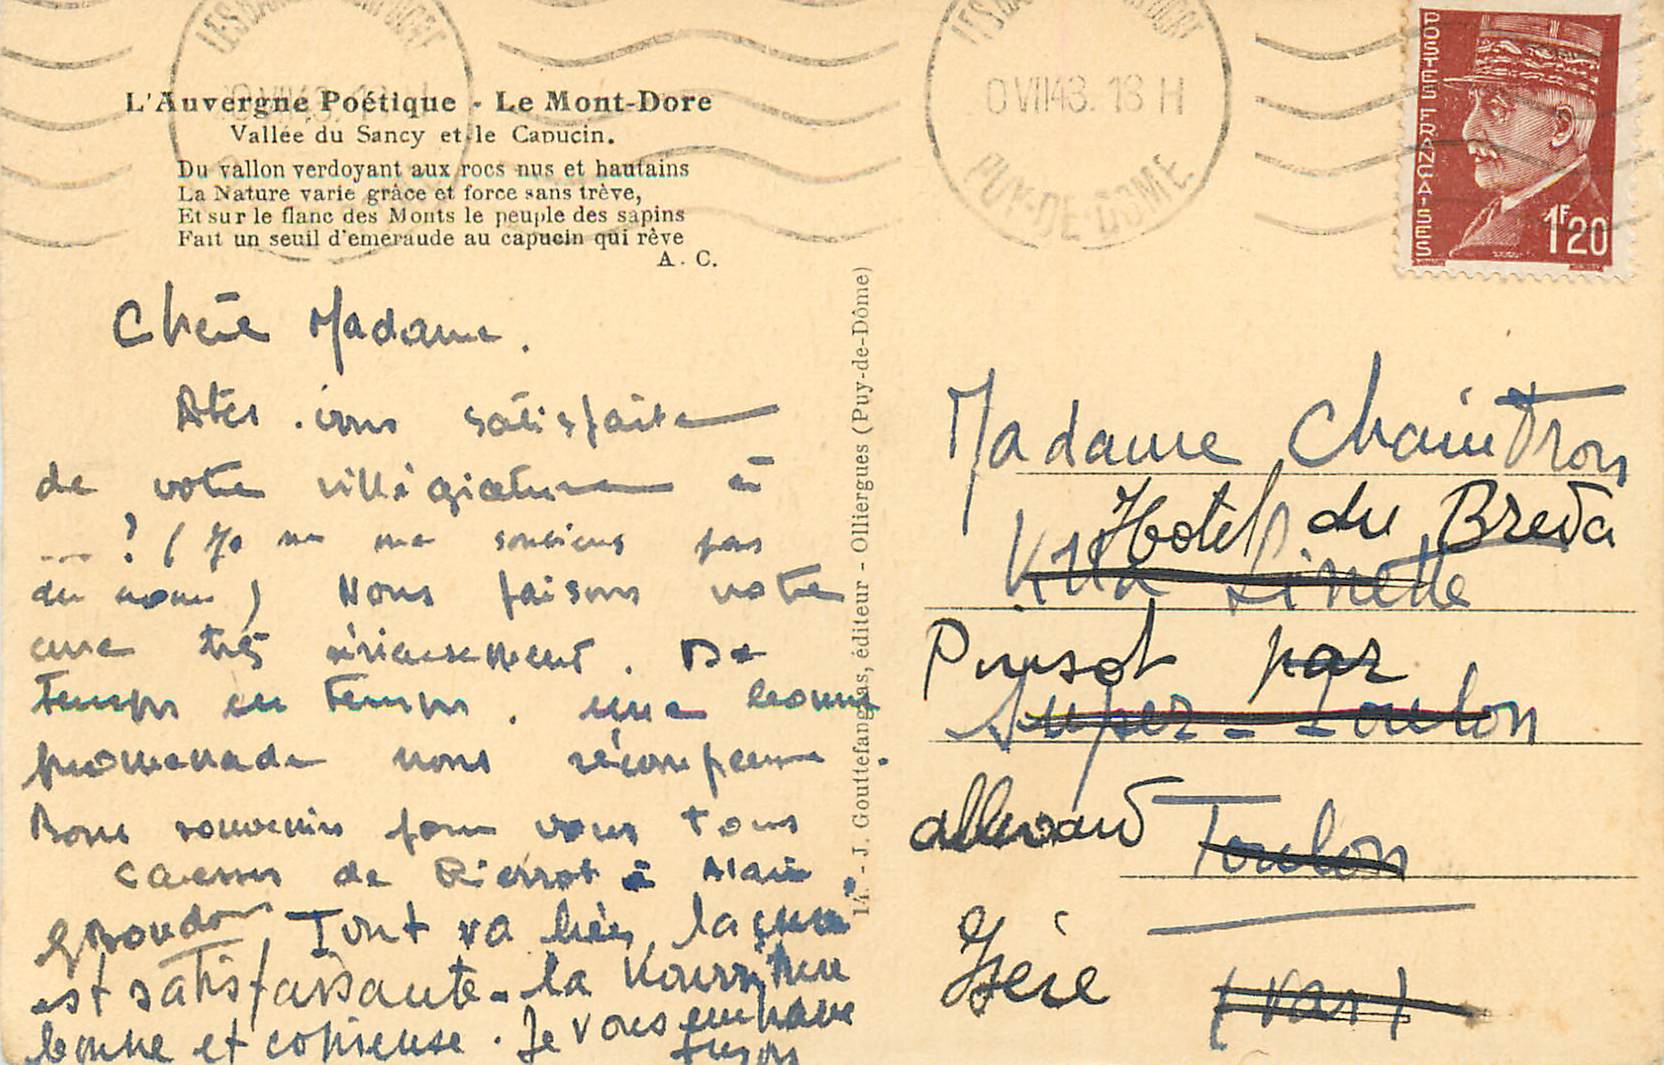 L'Auvergne Poétique - Le Mont-Dore
Vallée du Sancy et le Capucin.
Du vallon verdoyant aux rocs nus et hautains
La Nature varie grâce et force sans trève,
Et sur le flanc des Monts le peuple des sapins
Fait un seuil d'emeraude au capucin qui rêve
A. C.
Chère Madame.
Êtes-vous satisfaite
de votre villégiature à
... ? (Je ne me souviens pas
du nom) Nous faisons notre
cure très sérieusement. De
temps en temps, une bonne
promenade nous récompense.
Bons souvenirs pour vous tous
caresses de Pierrot à Alain.
Tout va bien, la cure
est satisfaisante - la nourriture
bonne et copieuse. Je vous embrasse
14. - J. Gouttefangeas, éditeur - Olliergues (Puy-de-Dôme)
0 VII 43. 18 H
PUY-DE-DOME
POSTES FRANÇAISES
1F20
Madame Chaintron
Hotel du Breda
Villa Linette
Pinsot par
Super-Toulon
allevard
Toulon
Isère
(Var)